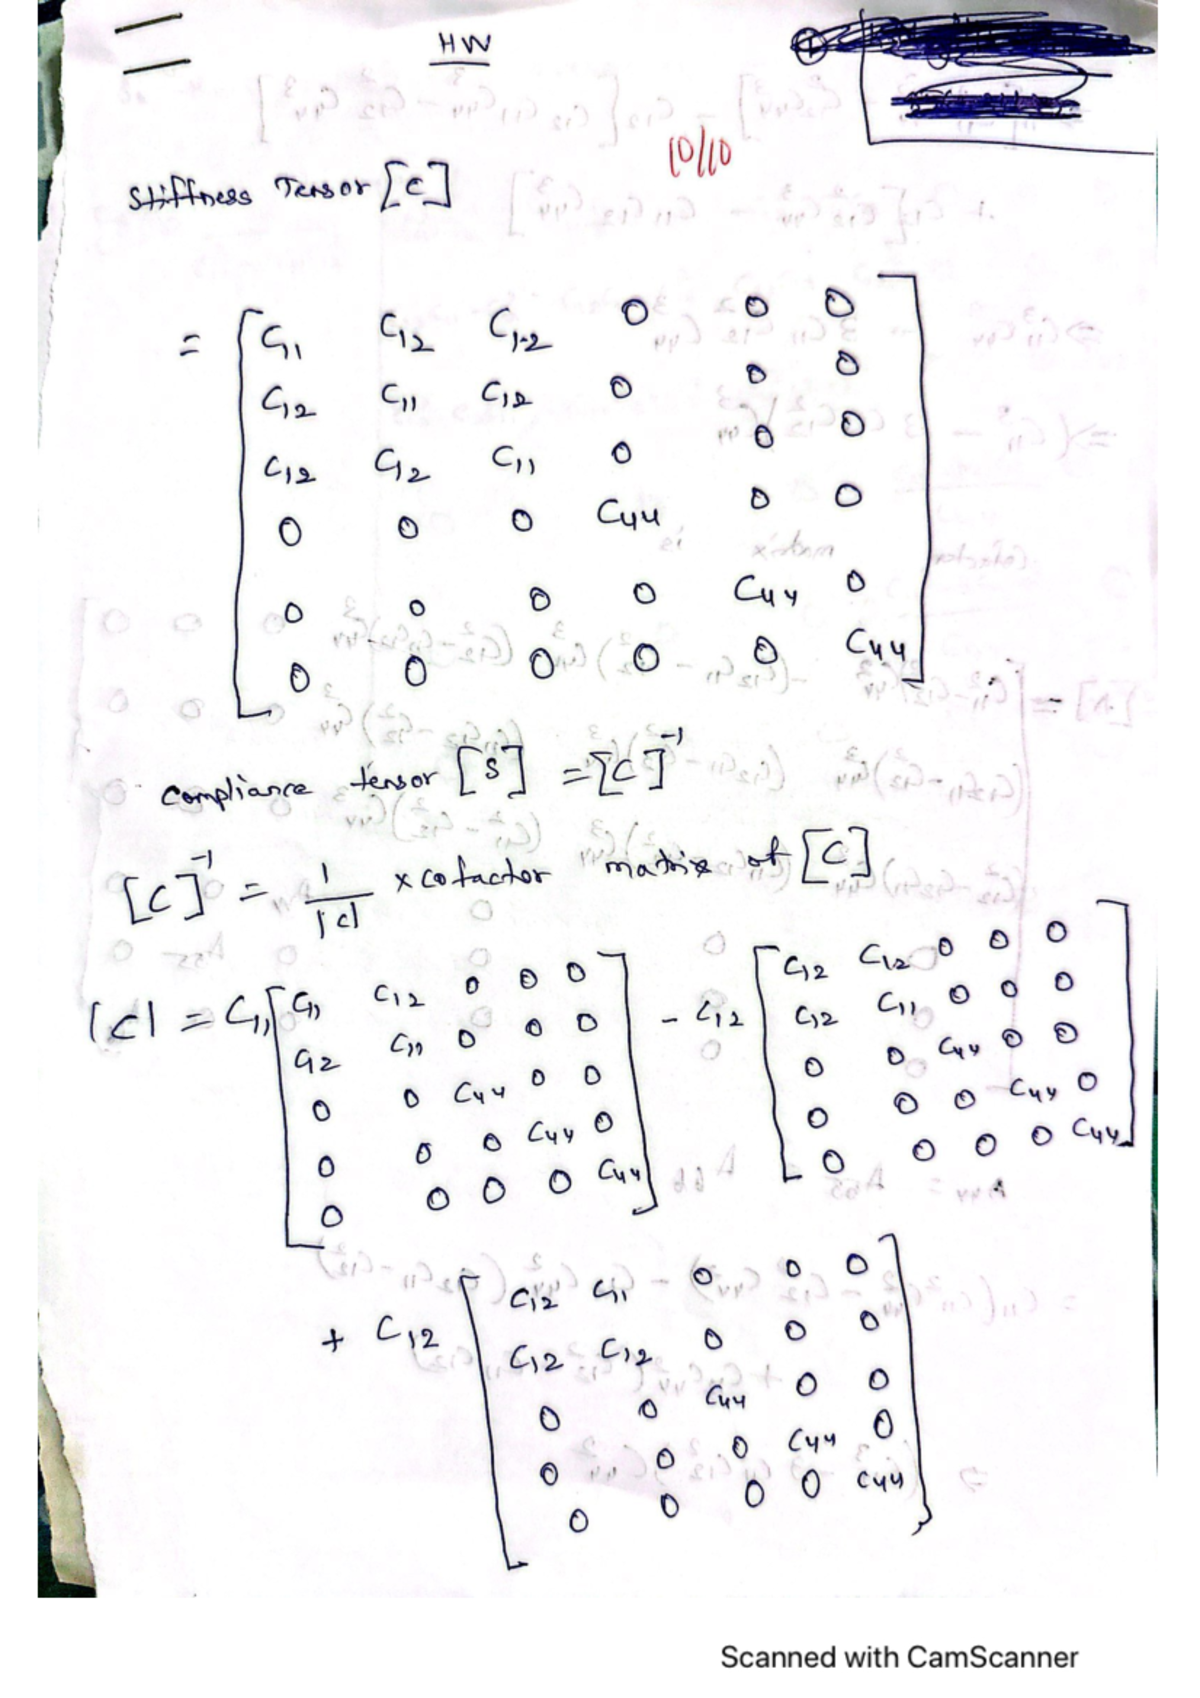 HW
10/10
Stiffness Tensor [C]
= [ C11 C12 C12 0 0 0
C12 C11 C12 0 0 0
C12 C12 C11 0 0 0
0 0 0 C44 0 0
0 0 0 0 C44 0
0 0 0 0 0 C44 ]
compliance tensor [S] = [C]^-1
[C]^-1 = 1/|c| × cofactor matrix of [C]
|c| = C11 [ C11 C12 0 0 0
C12 C11 0 0 0
0 0 C44 0 0
0 0 0 C44 0
0 0 0 0 C44 ]
- C12 [ C12 C12 0 0 0
C12 C11 0 0 0
0 0 C44 0 0
0 0 0 C44 0
0 0 0 0 C44 ]
+ C12 [ C12 C11 0 0 0
C12 C12 0 0 0
0 0 C44 0 0
0 0 0 C44 0
0 0 0 0 C44 ]
Scanned with CamScanner